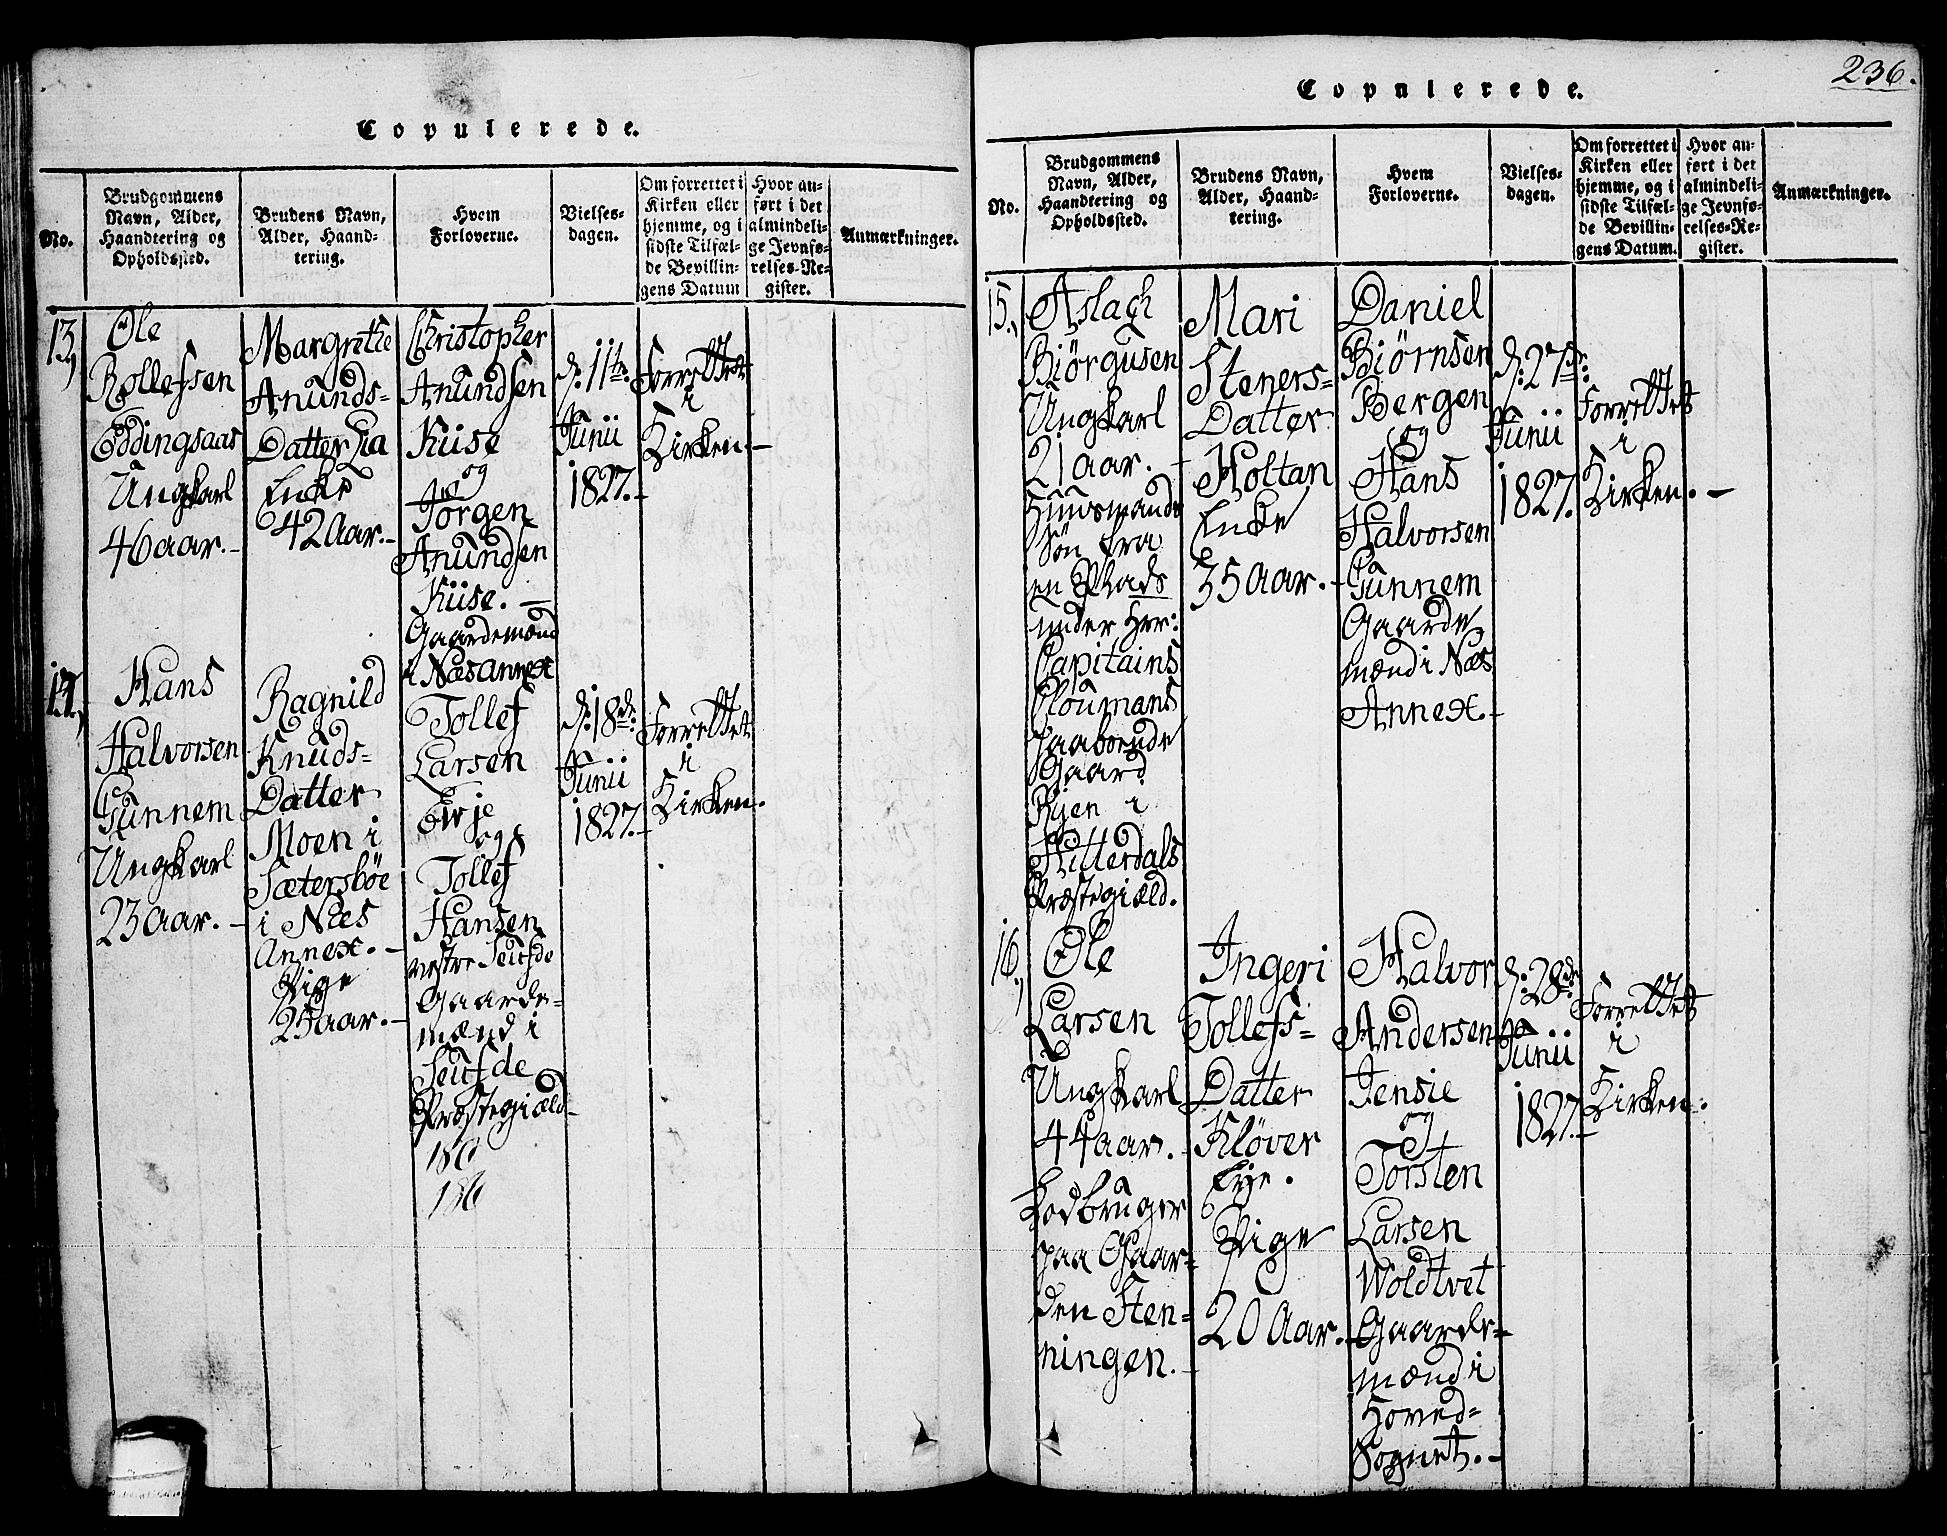 Copulerede.
No.
Brudgommens
Navn, Alder,
Haandtering og
Opholdssted.
Brudens Navn,
Alder, Haand-
tering.
Hvem
Forloverne.
Vielses-
dagen.
Om forrettet i
Kirken eller
hjemme, og i
sidste Tilfæl-
de Bevillin-
gens Datum
Hvor an-
ført i det
almindeli-
ge Jevnfø-
relses-Re-
gister.
Anmærkninger.
13,
Ole
Rollefsen
Eddingsaas
Ungkarl
46 aar.-
Margrethe
Anunds-
Datter Lia
Enke
42 Aar.-
Christopher
Anundsen
Kiise
og
Jørgen
Anundsen
Kiise. -
Gaardemænd
i Næs Annex
d: 11te
Junii
1827.-
Forrettet
i
Kirken.-
14,
Hans
Halvorsen
Gunnem
Ungkarl
23 aar. -
Ragnild
Knuds-
Datter
Moen i
Sætersbøe
i Næs
Annex. -
Pige
25 aar. -
Tollef
Larsen
Evje
og
Tollef
Hansen
nestre Seufde
Gaarde-
mænd i
Seufde
Præstegiæld-
186
186
d: 18de
Junii
1827.-
Forrettet
i
Kirken.
236.
Copulerede.
No.
Brudgommens
Navn, Alder,
Haandtering og
Opholdssted.
Brudens Navn,
Alder, Haand-
tering.
Hvem
Forloverne.
Vielses-
dagen.
Om forrettet i
Kirken eller
hjemme, og i
sidste Tilfæl-
de Bevillin-
gens Datum.
Hvor an-
ført i det
almindeli-
ge Jevnfø-
relses-Re-
gister.
Anmærkninger.
15.,
Aslach
Biørgusen
Ungkarl
21 aar. -
Huusmands
Søn fra
en Plads
under Hrr:
Capitains
Cloumans
paaboende
Gaard
Ryen i
Hitterdals
Præstegiæld.
Mari
Steners-
Datter
Holtan
Enke
35 Aar. -
Daniel
Biørnsen
Bergen
og
Hans
Halvorsen
Gunnem
Gaarde
mænd i Næs
Annex.-
d: 27de:
Junii
1827.
Forrettet
i
Kirken. -
16.,
Ole
Larsen
Ungkarl
44 aar. -
Jodbruger
paa Gaar-
den Sten-
ningen. -
Ingeri
Tollefs-
Datter
Kløver
Eje.
Pige
20 Aar. -
Halvor
Andersen
Jensie
og
Torsten
Larsen
Woldtvet
Gaarde-
mænd i
Hoved-
Sognet. -
d: 28de
Junii
1827.-
Forrettet
i
Kirken.